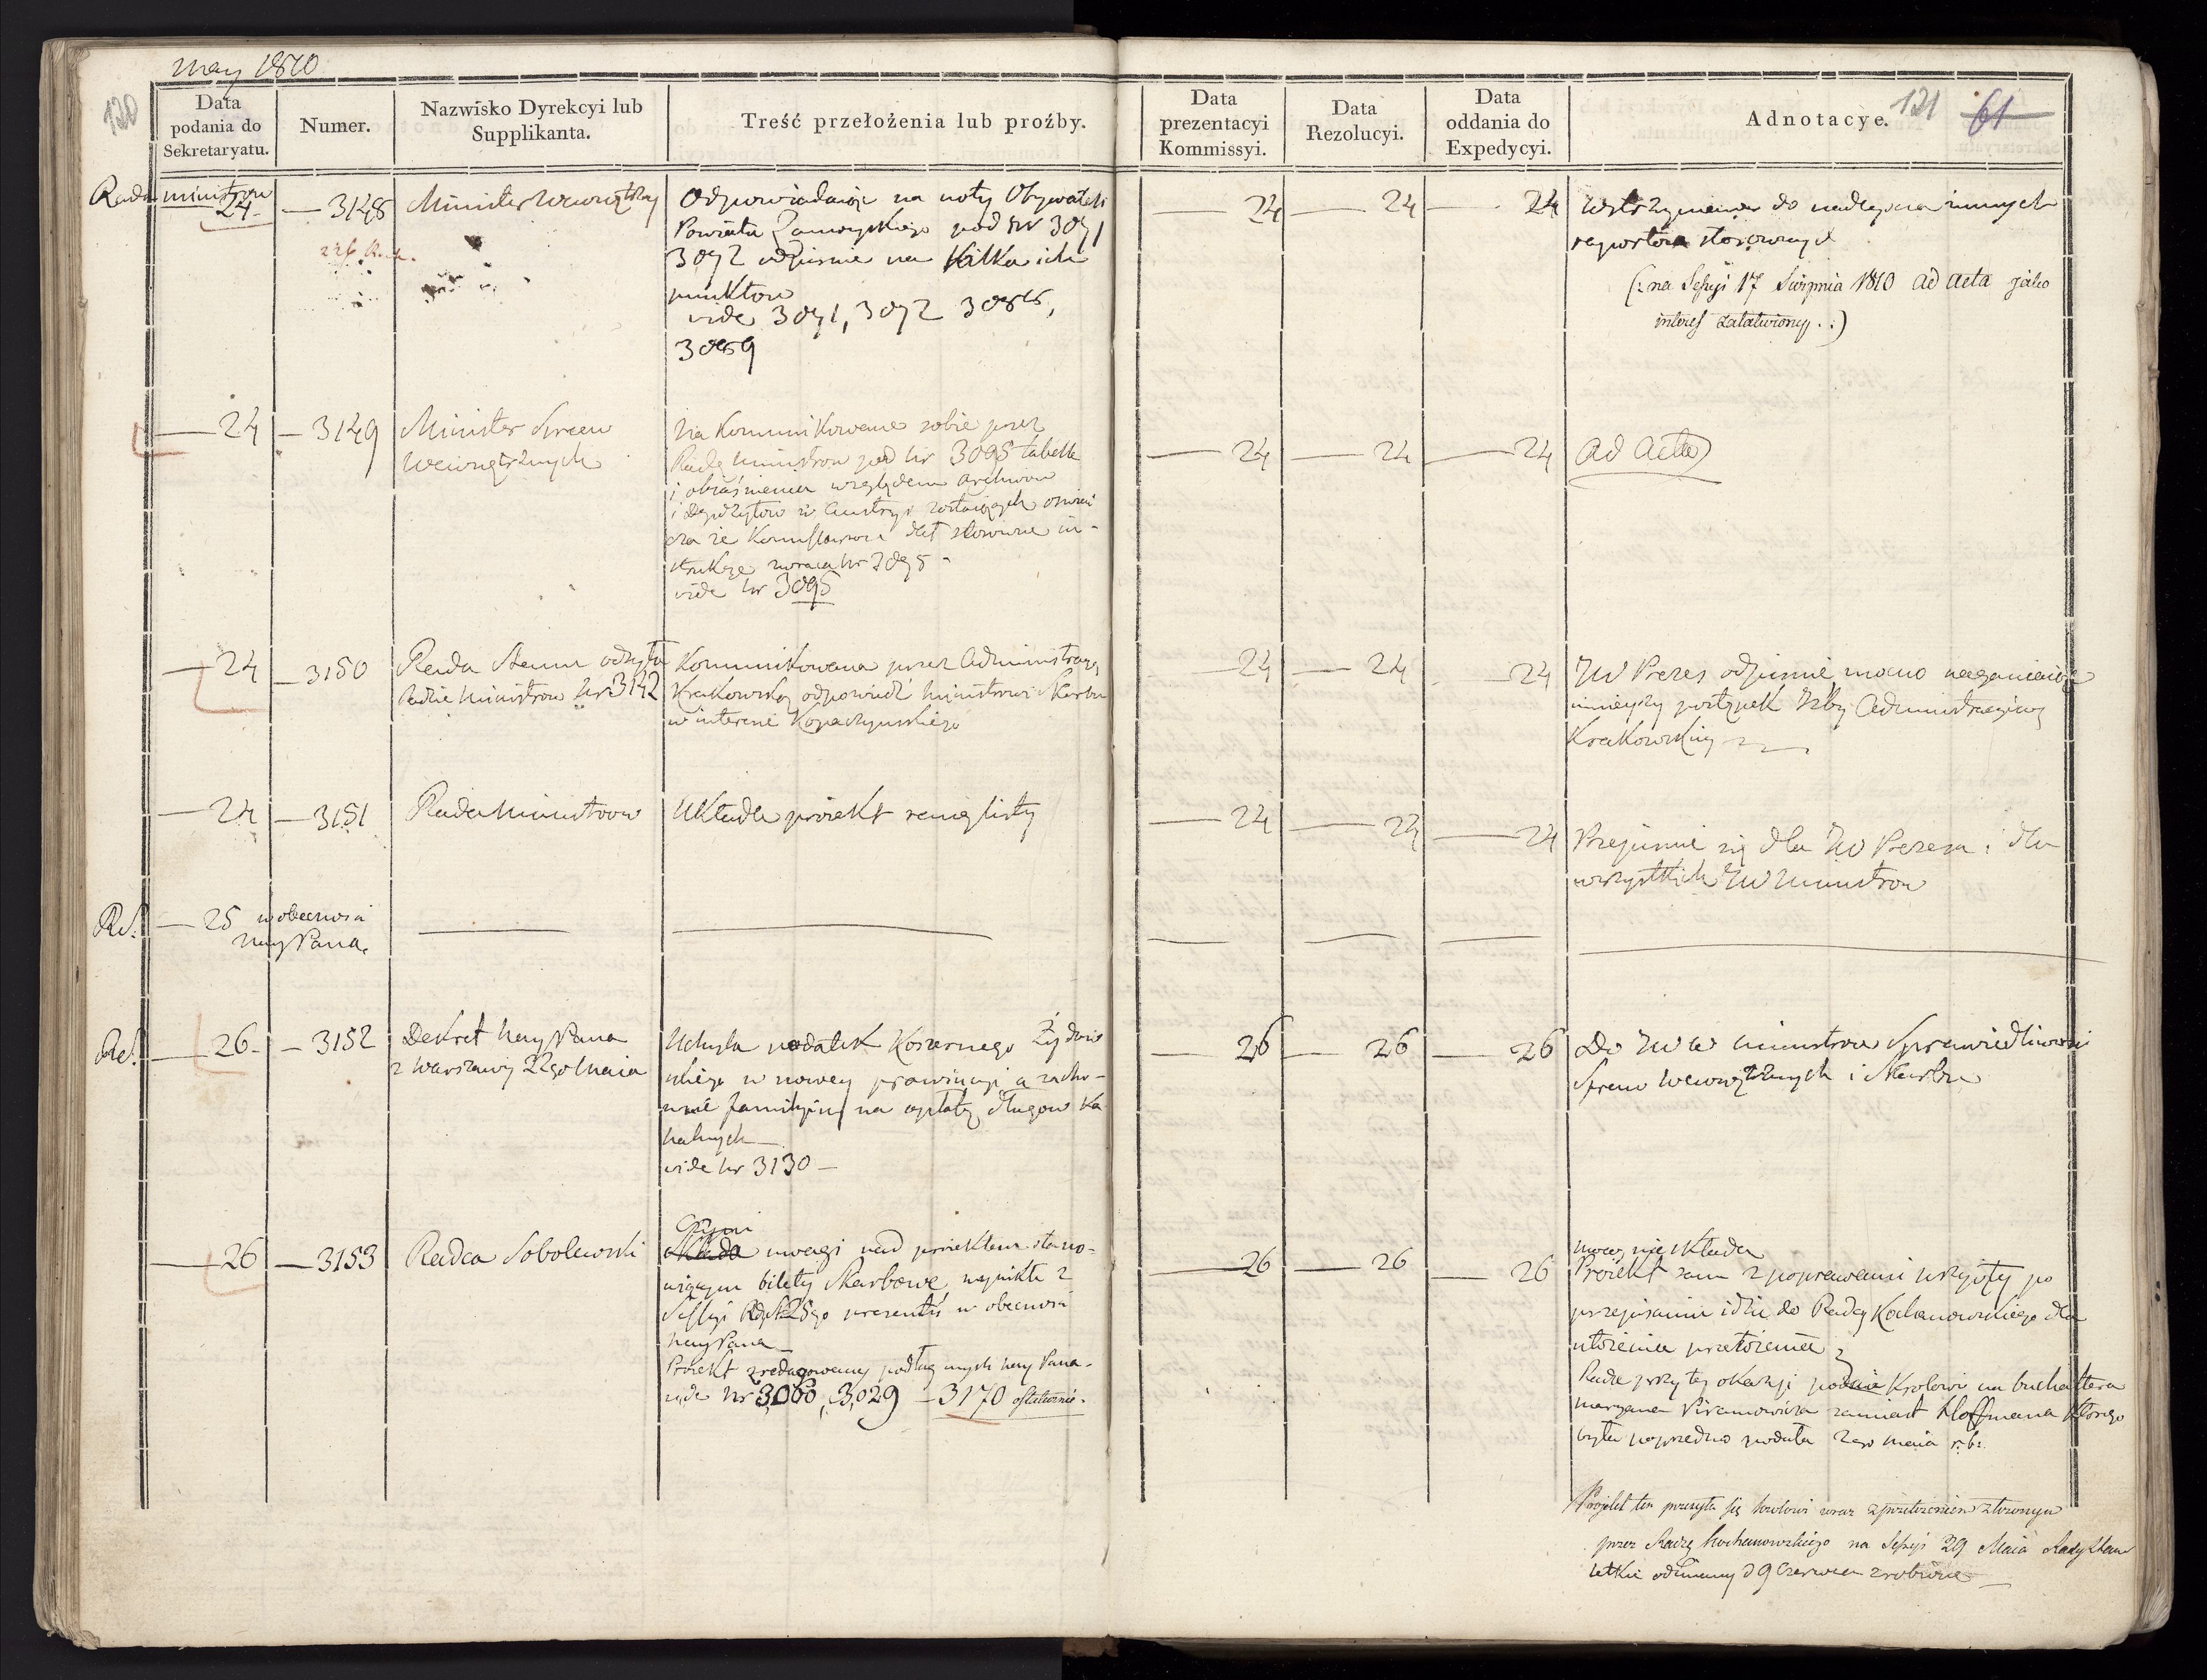 May 1810
120
Data podania do Sekretaryatu.
Numer.
Nazwisko Dyrekcyi lub Supplikanta.
Treść przełożenia lub proźby.
Data prezentacyi Kommissyi.
Data Rezolucyi.
Data oddania do Expedycyi.
Adnotacye.
121
61
Rada ministrow
24 — 3148
Minister Wewnętrzny
Odpowiadaiąc na noty Obywateli
Powiatu Zamoyskiego pod Nr 3071
3072 odpisuie na kilka ich
punktow
vide 3071, 3072
24 — 24 — 24
Wstrzymane do nadeyscia innych
raportow stosownych
(: na Sessyi 17 Sierpnia 1810 ad acta jako
interess załatwiony. :)
— 24 — 3149
Minister Spraw
Wewnętrznych
Na kommunikowane sobie przez
Radę Ministrow pod Nr 3095 tabelle
i obiaśnienia względem archiwow
i depozytow w Austryi zostaiących oswiad
cza że Kommissarzowi dał stosowne in-
strukcye zwraca Nr 3095 -
vide Nr 3095
24 — 24 — 24
Ad Acta
— 24 — 3150
Rada Stanu odsyła
Radzie Ministrow Nr 3142
Kommunikowana przez Administracyą
Krakowską odpowiedź Ministrowi Skarbu
w interesie Kopaczynskiego
— 24 — 24 — 24
JW Prezes odpisuie mocno naganiaiąc
ninieyszy postępek Izby Administracyiney
Krakowskiey
— 24 — 3151
Rada Ministrow
Układa proiekt
— 24 — 24 — 24
Przepisuie się dla JW Prezesa i dla
wszystkich JW Ministrow
RS. — 25 w obecnosci
Nay Pana.
RS. — 26 — 3152
Dekret Nay Pana
z Warszawy 22go Maia
Uchyla podatek Koszernego Żydow
skiego w nowey prowincyi a zacho-
wuie familyiny na opłatę długow Ka
halnych —
vide Nr 3130 —
— 26 — 26 — 26
Do JWW Ministrow Sprawiedliwosci
Spraw Wewnętrznych i Skarbu
— 26 — 3153
Radca Sobolewski
Czyni
Składa uwagi nad proiektem stano-
wiącym bilety Skarbowe wynikłe z
Sessyi RdySt 25go w obecnosci
Nay Pana —
Proiekt zredagowany podług mysli Nay Pana -
vide Nr 3060, 3029 — 3170 ostatecznie.
— 26 — 26 — 26
uwag nie składa
Proiekt sam z poprawami przyięty po
przepisaniu idzie do Radcy Kochanowskiego dla
ułożenia przełożenia
Rada przy tey okazyi podaie Krolowi na buchaltera
Maryana Piramowicza zamiast Hoffmana ktorego
była poprzednio podała 2go Maia r. b.
Projekt ten przesyła się krolowi wraz z przełożeniem złożonym
przez Radcę Kochanowskiego na Sessyi 29 Maia Rady Stanu
odmiany d 9 Czerwca zrobione —